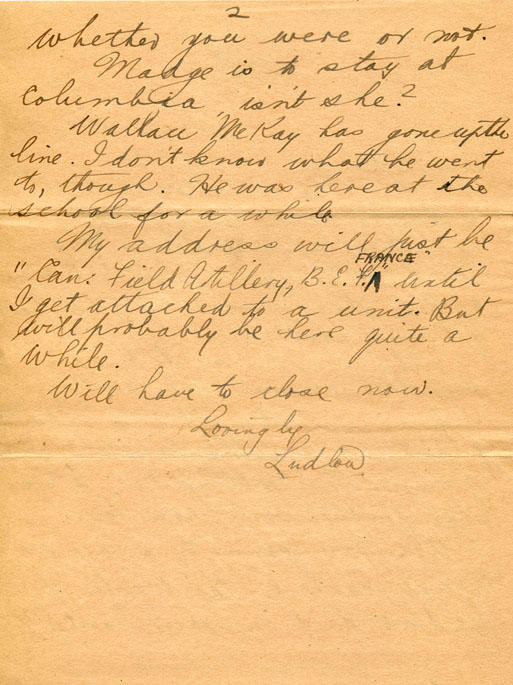 2
whether you were or not.
Madge is to stay at
Columbia, isn't she?
Wallace McKay has gone up the
line. I don't know what he went
to, though. He was here at the
school for a while
My address will just be
FRANCE
"Can: Field Atillery, B.E.F. ∧" until
I get attached to a unit. But
will probably be here quite a
while.
Will have to close now.
Lovingly
Ludlow